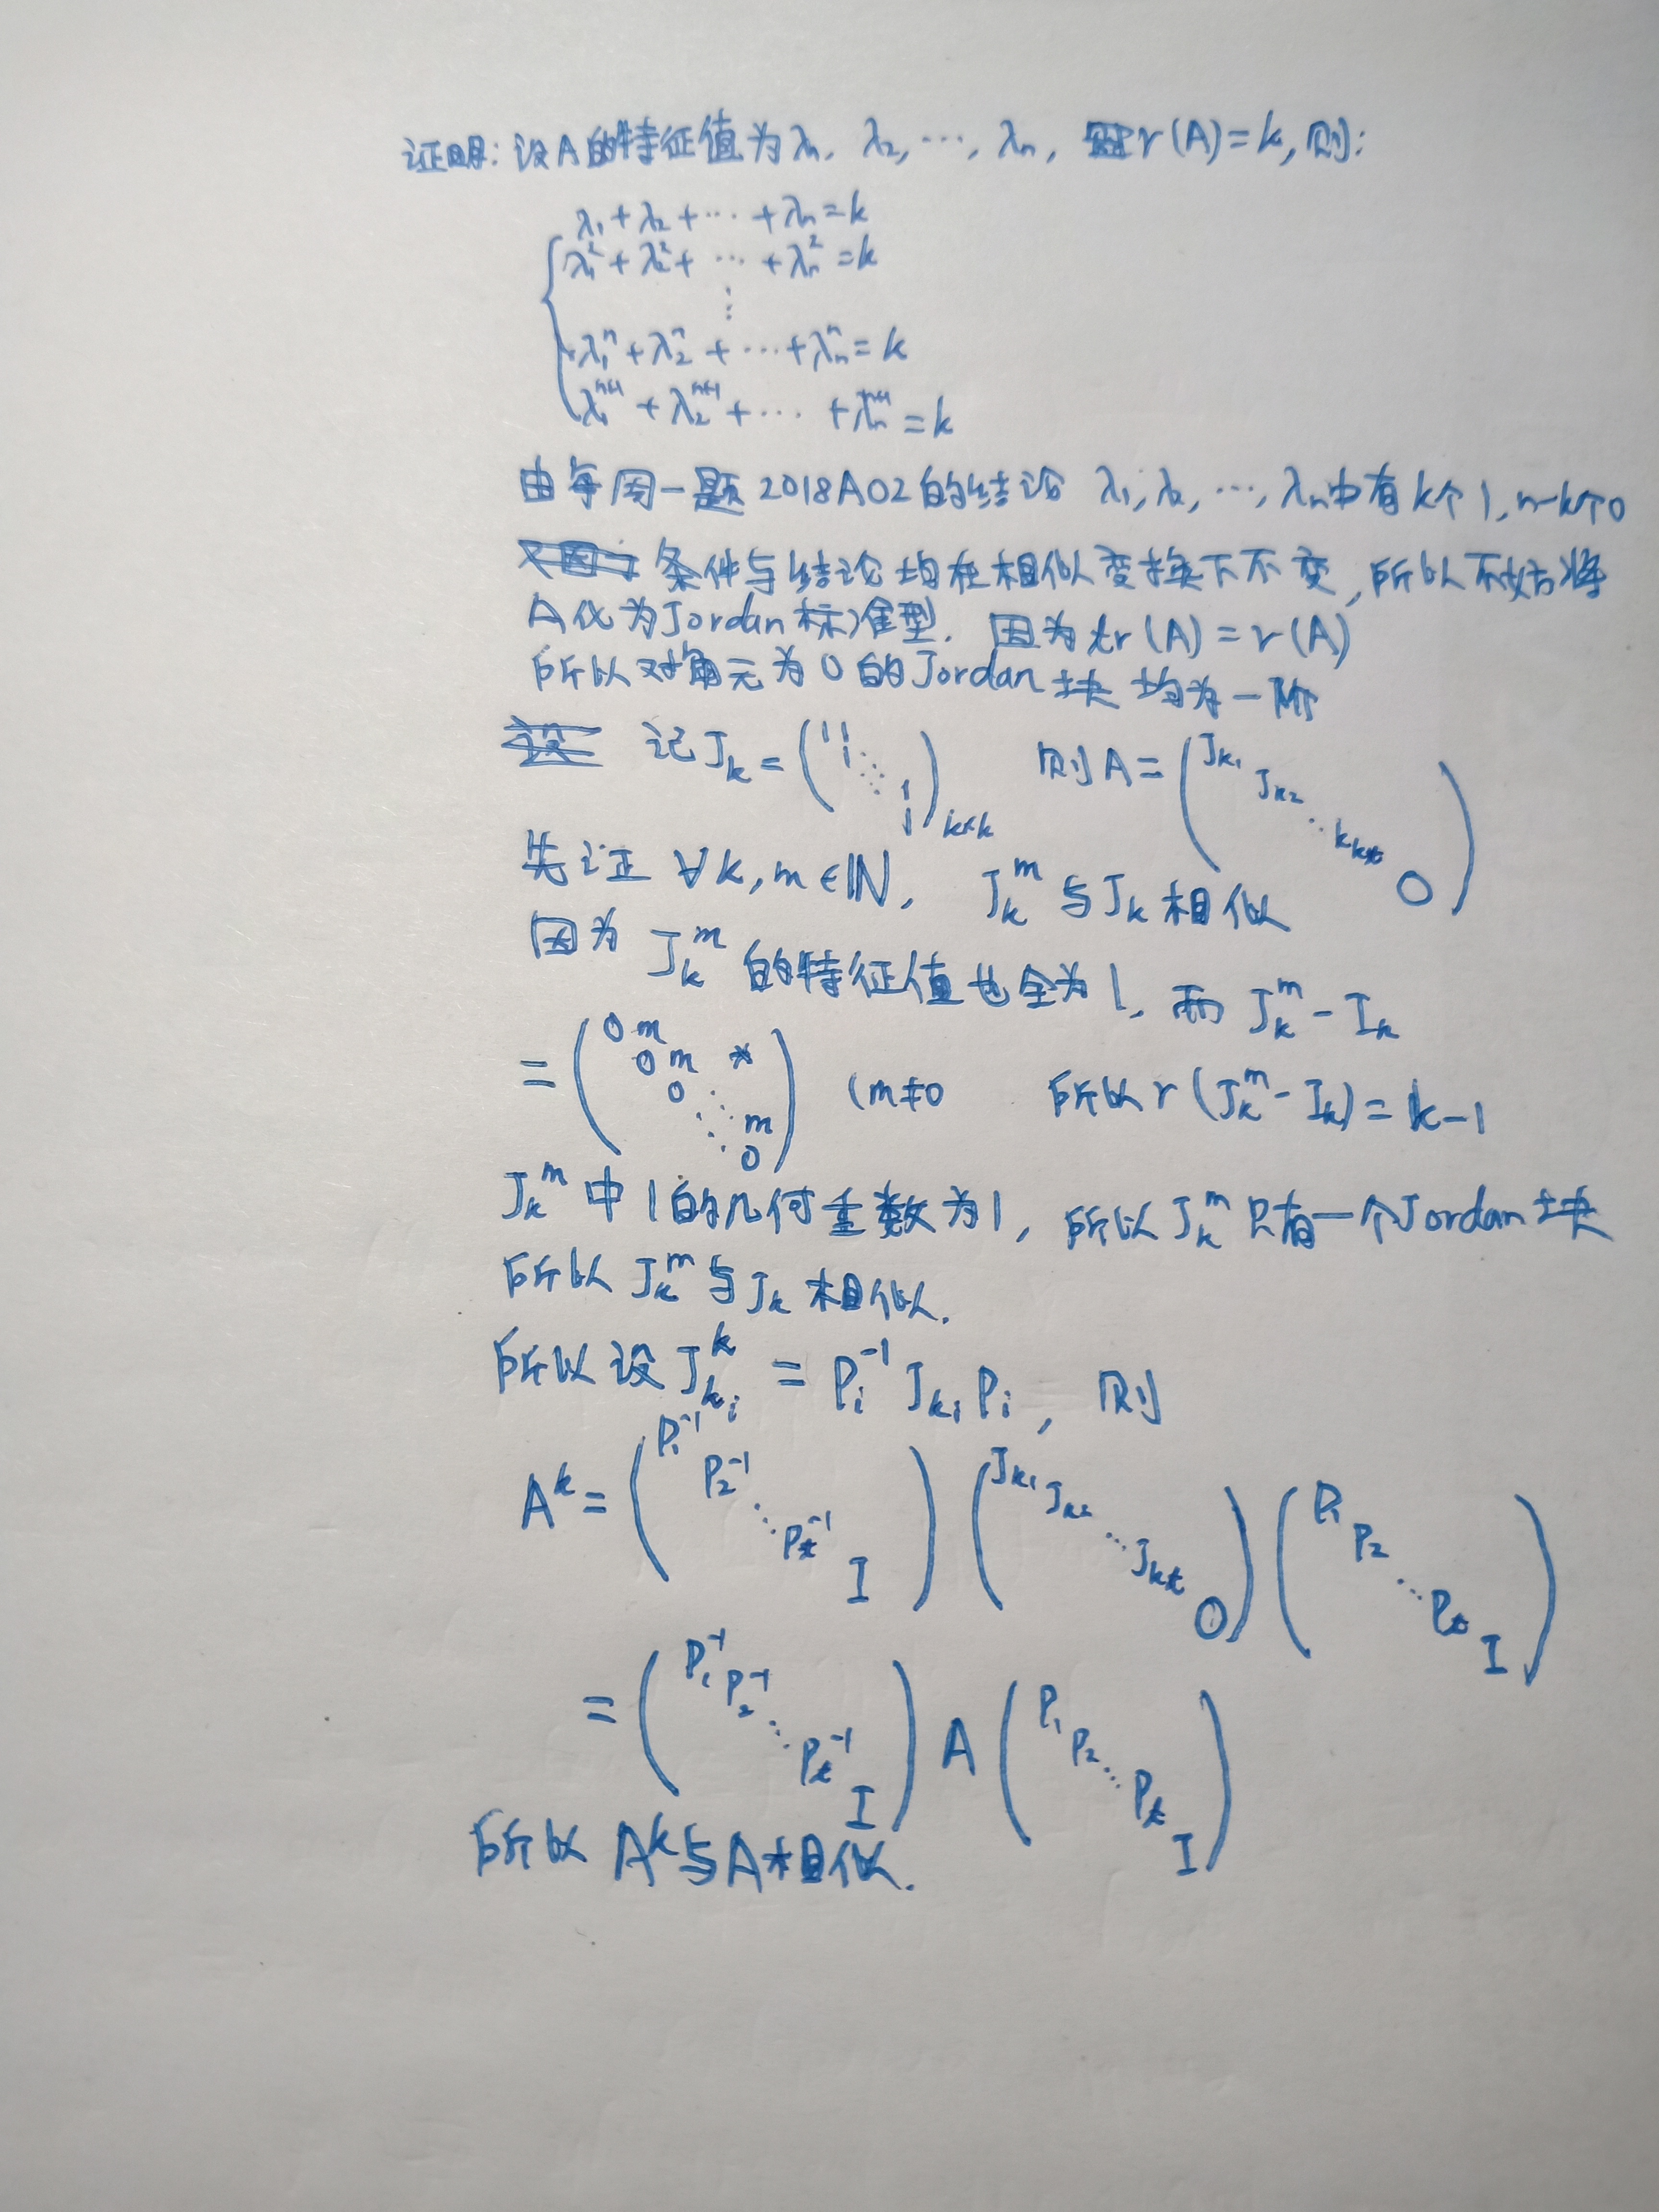 证明：设A的特征值为λ₁, λ₂, ⋯, λₙ, r(A)=k, 则：
λ₁+λ₂+⋯+λₙ=k
λ₁²+λ₂²+⋯+λₙ²=k
⋮
λ₁ⁿ+λ₂ⁿ+⋯+λₙⁿ=k
λ₁ⁿ⁺¹+λ₂ⁿ⁺¹+⋯+λₙⁿ⁺¹=k
由每周一题2018A02的结论 λ₁,λ₂,⋯,λₙ中有k个1, n-k个0
条件与结论均在相似变换下不变,所以不妨将
A化为Jordan标准型. 因为tr(A)=r(A)
所以对角元为0的Jordan块均为一阶
记J_k=(1 1 1 ⋱ 1 1)_{k×k} 则A=(J_{k₁} J_{k₂} ⋱ k_{kt} O)
先证 ∀k,m∈ℕ, J_k^m与J_k相似
因为 J_k^m的特征值也全为1, 而 J_k^m-I_k
=(0 m 0 m * 0 ⋱ m 0) (m≠0 所以r(J_k^m-I_k)=k-1
J_k^m中1的几何重数为1, 所以J_k^m只有一个Jordan块
所以J_k^m与J_k相似.
所以设J_{k_i}^k=P_i⁻¹J_{k_i}P_i, 则
A^k=(P₁⁻¹ P₂⁻¹ ⋱ P_t⁻¹ I)(J_{k₁} J_{k₂} ⋱ J_{kt} O)(P₁ P₂ ⋱ P_t I)
=(P₁⁻¹ P₂⁻¹ ⋱ P_t⁻¹ I)A(P₁ P₂ ⋱ P_t I)
所以A^k与A相似.